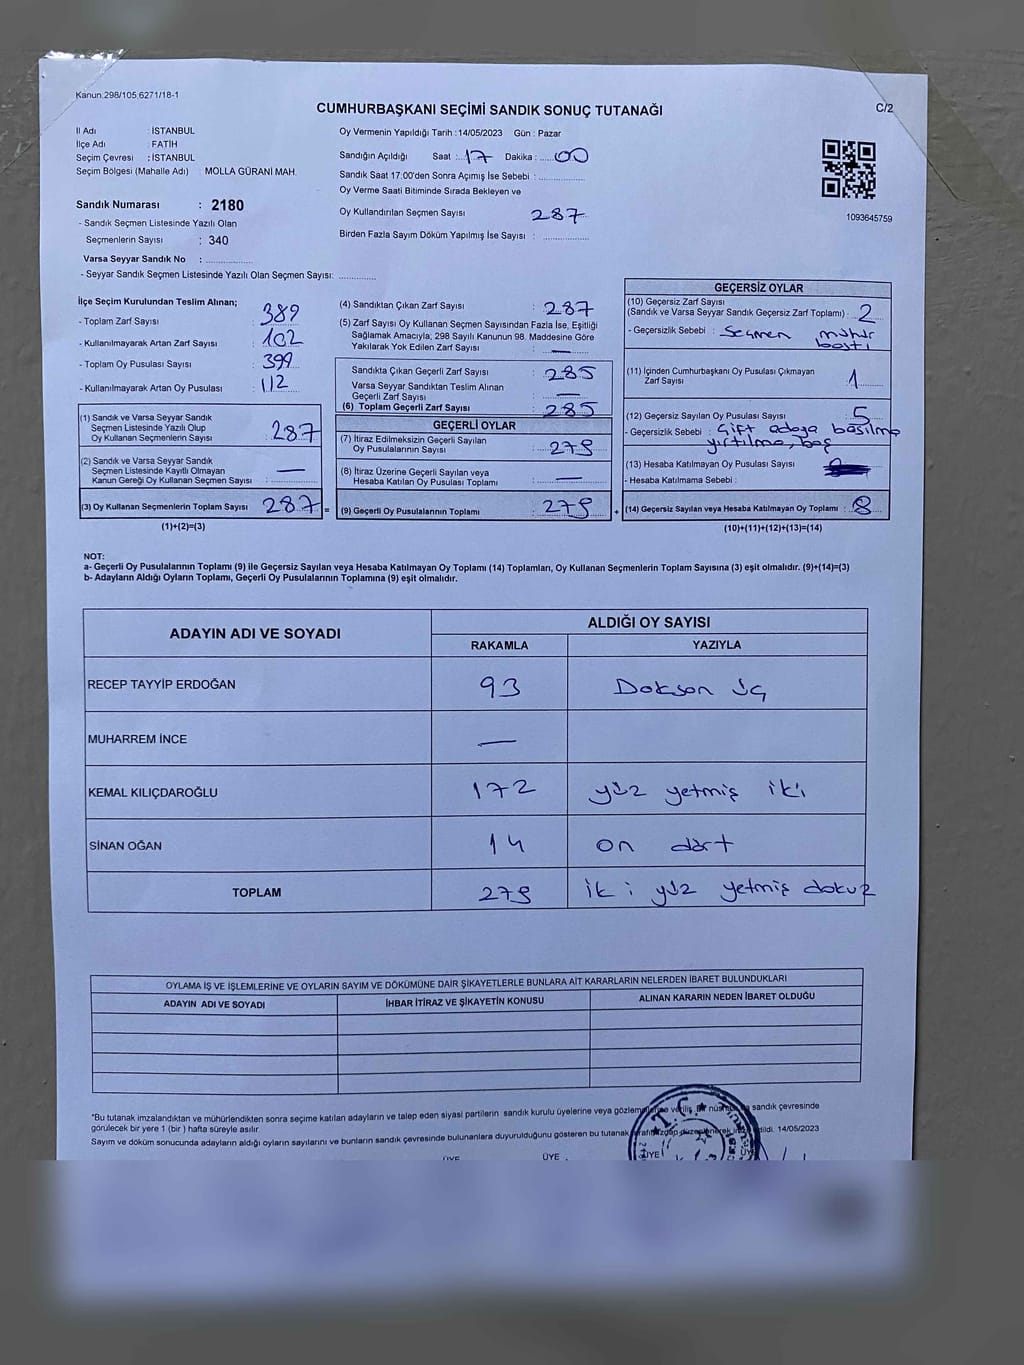 Kanun:298/105;6271/18-1
CUMHURBAŞKANI SEÇİMİ SANDIK SONUÇ TUTANAĞI
C/2
İl Adı : İSTANBUL
İlçe Adı : FATİH
Seçim Çevresi : İSTANBUL
Seçim Bölgesi (Mahalle Adı) MOLLA GÜRANİ MAH.
Sandık Numarası : 2180
- Sandık Seçmen Listesinde Yazılı Olan
Seçmenlerin Sayısı : 340
Varsa Seyyar Sandık No :
- Seyyar Sandık Seçmen Listesinde Yazılı Olan Seçmen Sayısı:
Oy Vermenin Yapıldığı Tarih : 14/05/2023 Gün : Pazar
Sandığın Açıldığı Saat : 17 Dakika : 00
Sandık Saat 17:00'den Sonra Açımış İse Sebebi :
Oy Verme Saati Bitiminde Sırada Bekleyen ve
Oy Kullandırılan Seçmen Sayısı 287
Birden Fazla Sayım Döküm Yapılmış İse Sayısı :
1093645759
İlçe Seçim Kurulundan Teslim Alınan;
- Toplam Zarf Sayısı : 389
- Kullanılmayarak Artan Zarf Sayısı : 102
- Toplam Oy Pusulası Sayısı : 399
- Kullanılmayarak Artan Oy Pusulası : 112
(1) Sandık ve Varsa Seyyar Sandık
Seçmen Listesinde Yazılı Olup
Oy Kullanan Seçmenlerin Sayısı : 287
(2) Sandık ve Varsa Seyyar Sandık
Seçmen Listesinde Kayıtlı Olmayan
Kanun Gereği Oy Kullanan Seçmen Sayısı : —
(3) Oy Kullanan Seçmenlerin Toplam Sayısı 287 =
(1)+(2)=(3)
(4) Sandıktan Çıkan Zarf Sayısı : 287
(5) Zarf Sayısı Oy Kullanan Seçmen Sayısından Fazla İse, Eşitliği
Sağlamak Amacıyla; 298 Sayılı Kanunun 98. Maddesine Göre
Yakılarak Yok Edilen Zarf Sayısı : —
Sandıkta Çıkan Geçerli Zarf Sayısı : 285
Varsa Seyyar Sandıktan Teslim Alınan
Geçerli Zarf Sayısı : —
(6) Toplam Geçerli Zarf Sayısı : 285
GEÇERLİ OYLAR
(7) İtiraz Edilmeksizin Geçerli Sayılan
Oy Pusulalarının Sayısı : 279
(8) İtiraz Üzerine Geçerli Sayılan veya
Hesaba Katılan Oy Pusulası Toplamı : —
(9) Geçerli Oy Pusulalarının Toplamı : 279 +
GEÇERSİZ OYLAR
(10) Geçersiz Zarf Sayısı
(Sandık ve Varsa Seyyar Sandık Geçersiz Zarf Toplamı) : 2
- Geçersizlik Sebebi : Seçmen mühür
bastı
(11) İçinden Cumhurbaşkanı Oy Pusulası Çıkmayan
Zarf Sayısı : 1
(12) Geçersiz Sayılan Oy Pusulası Sayısı : 5
- Geçersizlik Sebebi : Çift adaya basılma
yırtılma, boş
(13) Hesaba Katılmayan Oy Pusulası Sayısı
- Hesaba Katılmama Sebebi :
(14) Geçersiz Sayılan veya Hesaba Katılmayan Oy Toplamı : 8
(10)+(11)+(12)+(13)=(14)
NOT:
a- Geçerli Oy Pusulalarının Toplamı (9) ile Geçersiz Sayılan veya Hesaba Katılmayan Oy Toplamı (14) Toplamları, Oy Kullanan Seçmenlerin Toplam Sayısına (3) eşit olmalıdır. (9)+(14)=(3)
b- Adayların Aldığı Oyların Toplamı, Geçerli Oy Pusulalarının Toplamına (9) eşit olmalıdır.
ADAYIN ADI VE SOYADI
ALDIĞI OY SAYISI
RAKAMLA YAZIYLA
RECEP TAYYİP ERDOĞAN 93 Doksan üç
MUHARREM İNCE —
KEMAL KILIÇDAROĞLU 172 yüz yetmiş iki
SİNAN OĞAN 14 on dört
TOPLAM 279 iki yüz yetmiş dokuz
OYLAMA İŞ VE İŞLEMLERİNE VE OYLARIN SAYIM VE DÖKÜMÜNE DAİR ŞİKAYETLERLE BUNLARA AİT KARARLARIN NELERDEN İBARET BULUNDUKLARI
ADAYIN ADI VE SOYADI İHBAR İTİRAZ VE ŞİKAYETİN KONUSU ALINAN KARARIN NEDEN İBARET OLDUĞU
*Bu tutanak imzalandıktan ve mühürlendikten sonra seçime katılan adayların ve talep eden siyasi partilerin sandık kurulu üyelerine veya sandık çevresinde
görülecek bir yere 1 (bir ) hafta süreyle asılır.
Sayım ve döküm sonucunda adayların aldığı oyların sayılarını ve bunların sandık çevresinde bulunanlara duyurulduğunu gösteren bu tutanak 14/05/2023
ÜYE ÜYE ÜYE ÜYE
T.C.